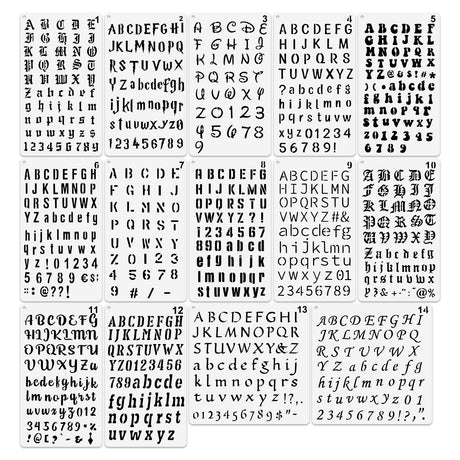 1
abcdef
ghijklmn
opqrst
uvwxyz
0123456789
2
ABCDEFGHI
JKLMNOPQ
RSTUVWX
YZabcdefgh
ijklmnopqr
stuvwxyz
123456789
3
ABCDEFG
HIJ
KLMNG
PQRST
UVWXYZ
0123
45678
9
4
ABCDEFG
HIJKLMN
OPQRS
TUVWXYZ
?abcdefg
hijklmno
pqrstuv
wxyz01234
56789
5
ABCDEFG
HIJKL
MNOPQR
STUVWX
YZ@&$!#*
)(•abcdef
ghijkl
mnopqr
stuvwxy
z012345
6789
6
ABCDEFGH
IJKLMNOPQ
RSTUVWXYZ
YZabcdefg
hijklmnop
qrstuvwx
yz!01234
56789€$:
::@???!
7
ABCDE
FGHIJ
KLMNO
PQRST
UVWXY
Z0123
45678
9#/-
8
ABCDEFGH
IJKLMNO
PQRSTU
VWXYZ?!
1234567
890abcd
efghijkl
mnopqr
stuvwxyz
9
ABCDEFGH
IJKLMN
OPQRSTU
VWXYZ#&
abcdefg
hijklmn
opqrstu
vwxyz01
23456789
10
ABCDE
FGHIJ
KLMNO
PQRST
UVWXYZ
abcdefgh
ijklmnop
qrstuvwx
11
ABCDEFG
HIJKLMN
OPQRSTU
VWXYZa
bcdefghi
jklmnopqrst
uvwxyz012
3456789
12
ABCDEFGH
IJKLMNOP
QRSTUVWX
YZ0123456
789abcde
fghijklm
nopqrst
uvwxyz
13
ABCDEFGHI
JKLMNOPQR
STUVWXY&Z
abcdefghi
jklmnopqr
stuvwxyz!?,.
0123456789$"-
14
ABCDEFGHI
JKLMNOPQ
RSTUVWXYZ
abcdefghij
klmnopqrs
tuvwxyz01
23456789!?,".